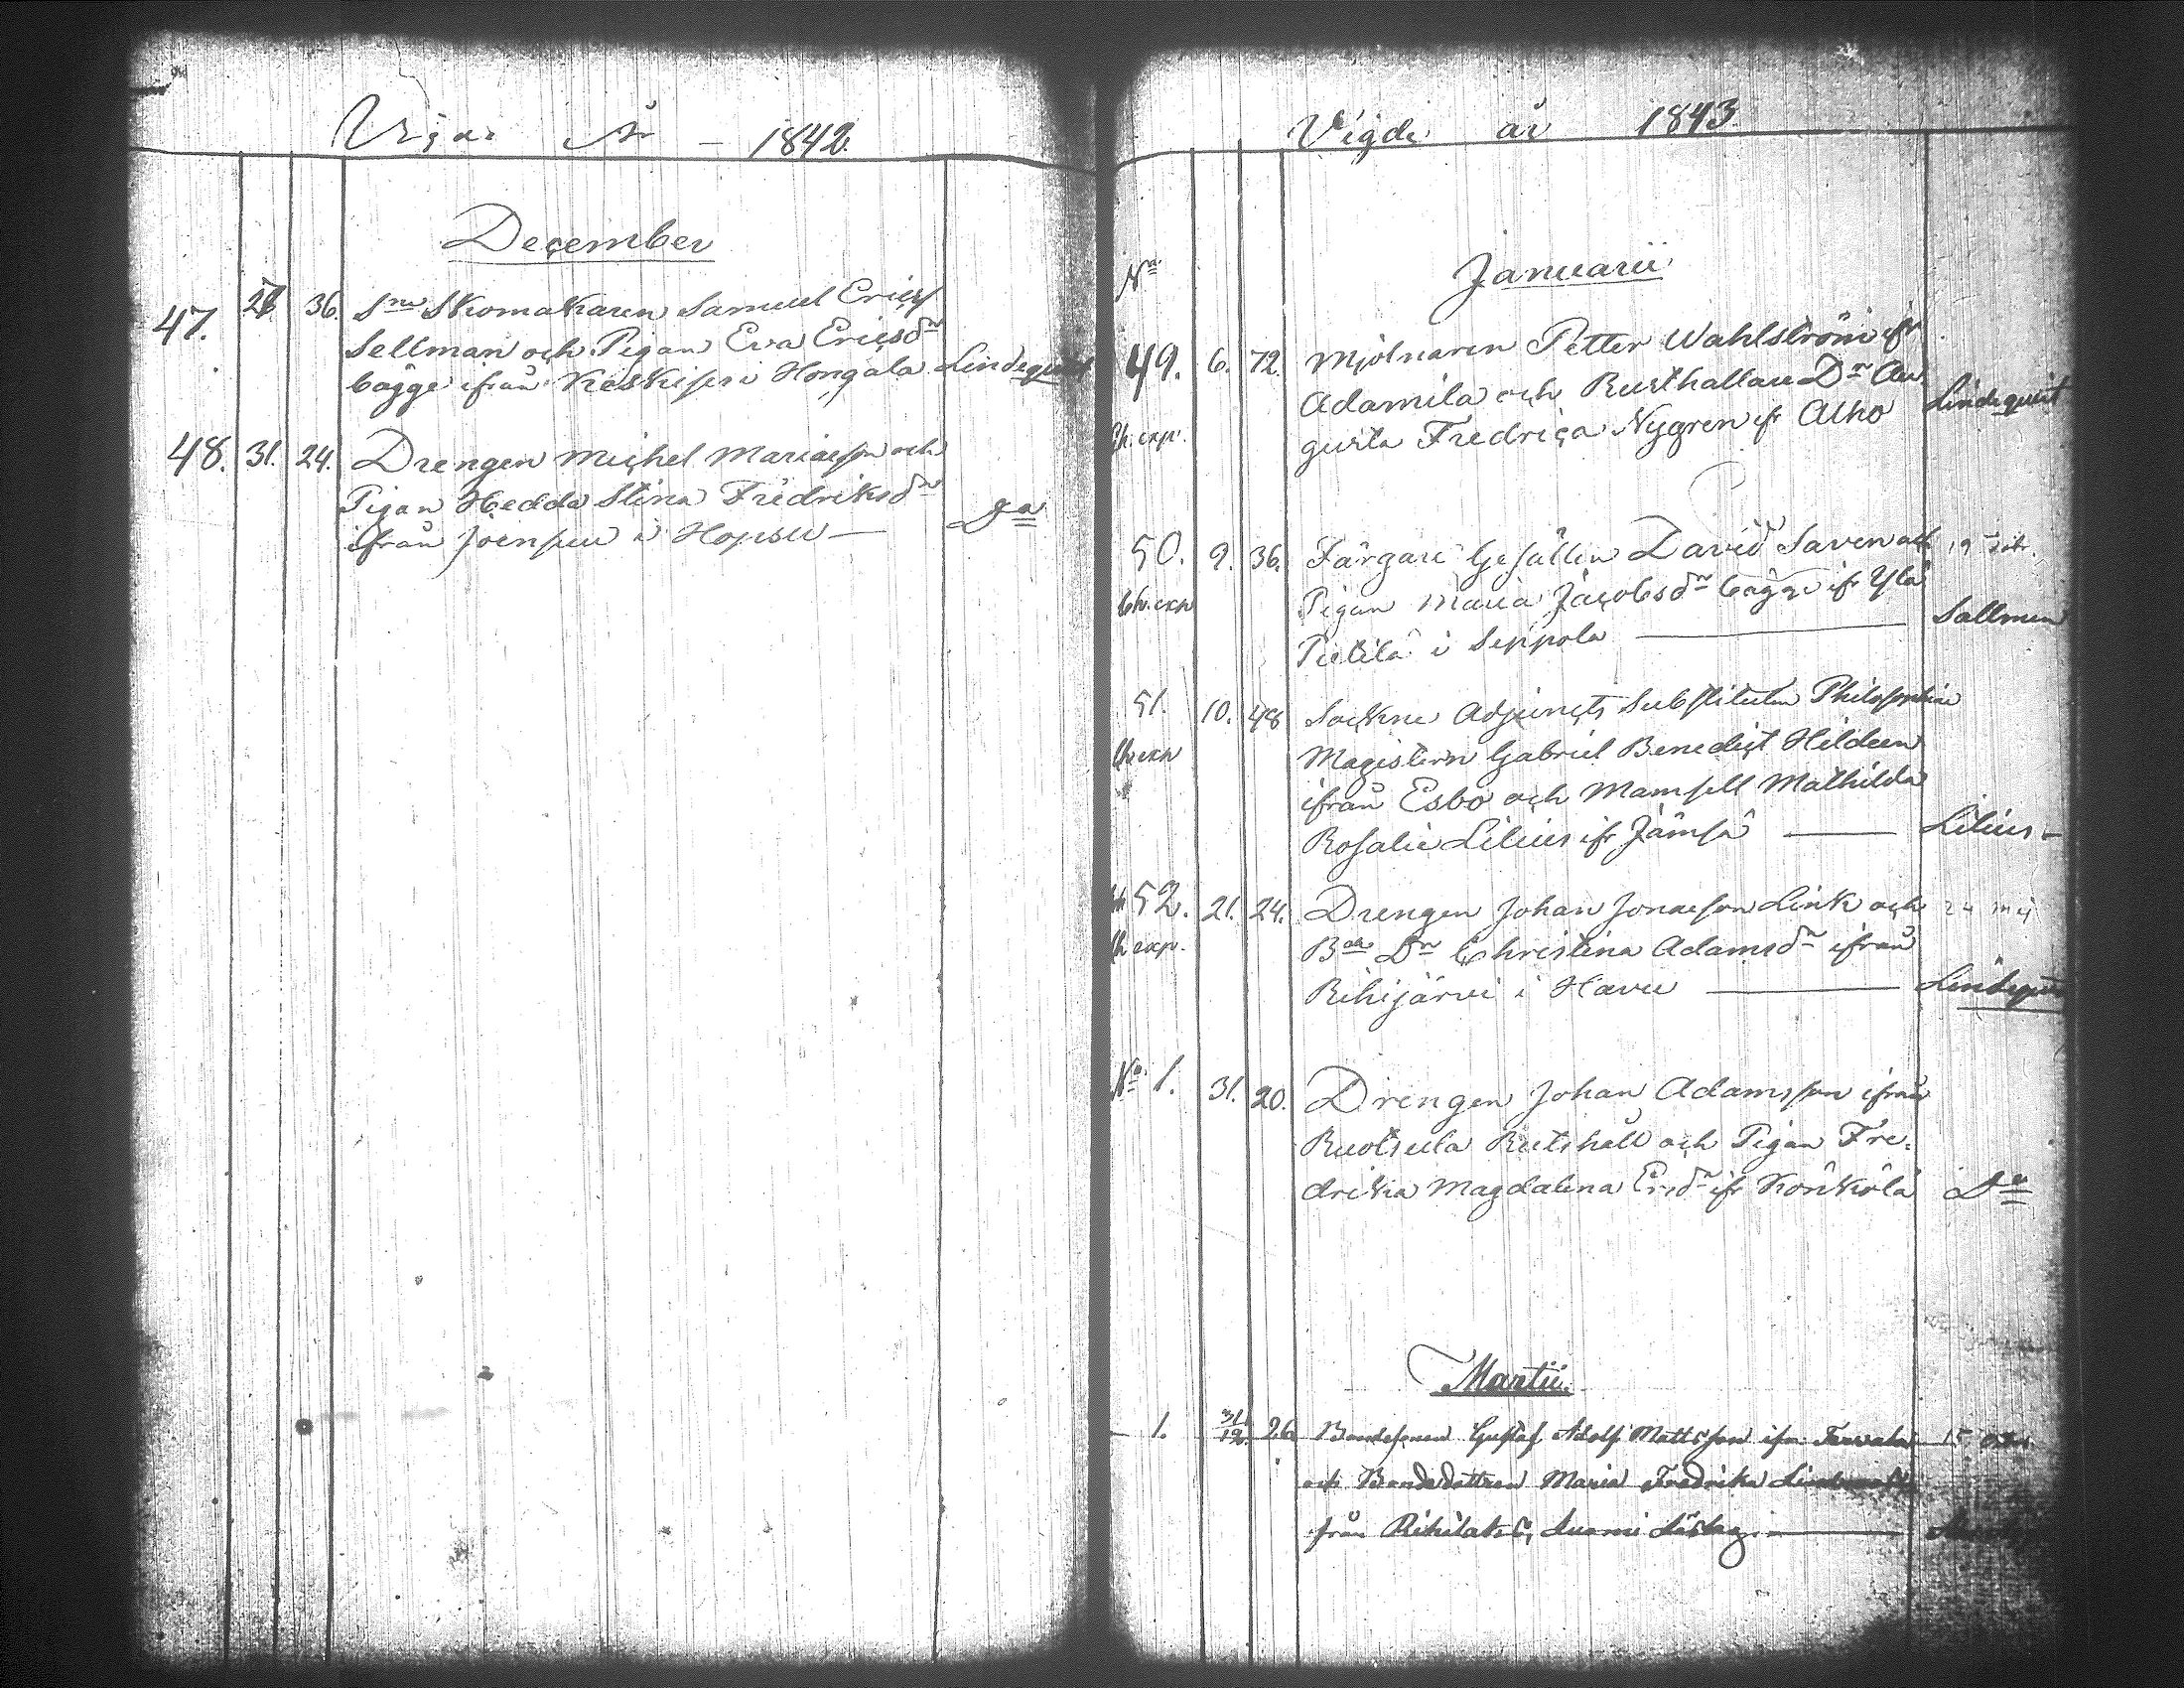 Vigde År 1842.
December
47. 27 36. S:ne Skomakaren Samuel Ericss
Sellman och Pigan Eva Ericsdr
bägge ifrån Keskiseri Hongola Lindequist
48. 31. 24. Drengen Michel Mariæson och
Pigan Hedda Stina Fredriksdr
ifrån Joenpeu i Hopsu — Do
Vigde år 1843.
No Januarii
49. 6. 72. Mjölnaren Petter Wahlström ifr
Adamila och Rusthållare Dr Au
Ch. exp. gusta Fredrica Nygren ifr Alho Lindequist
50. 9. 36. Färgare Gesällen David Saven och
Ch. exp Pigan Maria Jacobsdr bägge ifr Ylä
Pietilä i Seppola — Sallmen
51. 10. 48 Sockne Adjuncts Substituten Philosophiæ
Ch. exp Magistern Gabriel Benedict Hildeen
ifrån Esbo och Mamsell Mathilda
Rosalie Lilius ifr Jämsä — Lilius
52. 21. 24. Drengen Johan Jonaeson Link och 24 maj
Ch exp. Bde Dr Christina Adamsdr ifrån
Rihijärvi i Havu — Lindequist
No 1. 31. 20. Drengen Johan Adamsson ifrån
Ruotsula Rutshåll och Pigan Fre-
drika Magdalena Ersdr ifr Körkölä Do
Martii.
1. 31/12. 26 Bondesonen Gustaf Adolf Mattsson ifrn 15
och Bondedottren Maria Fredrika
från Rihilaks,